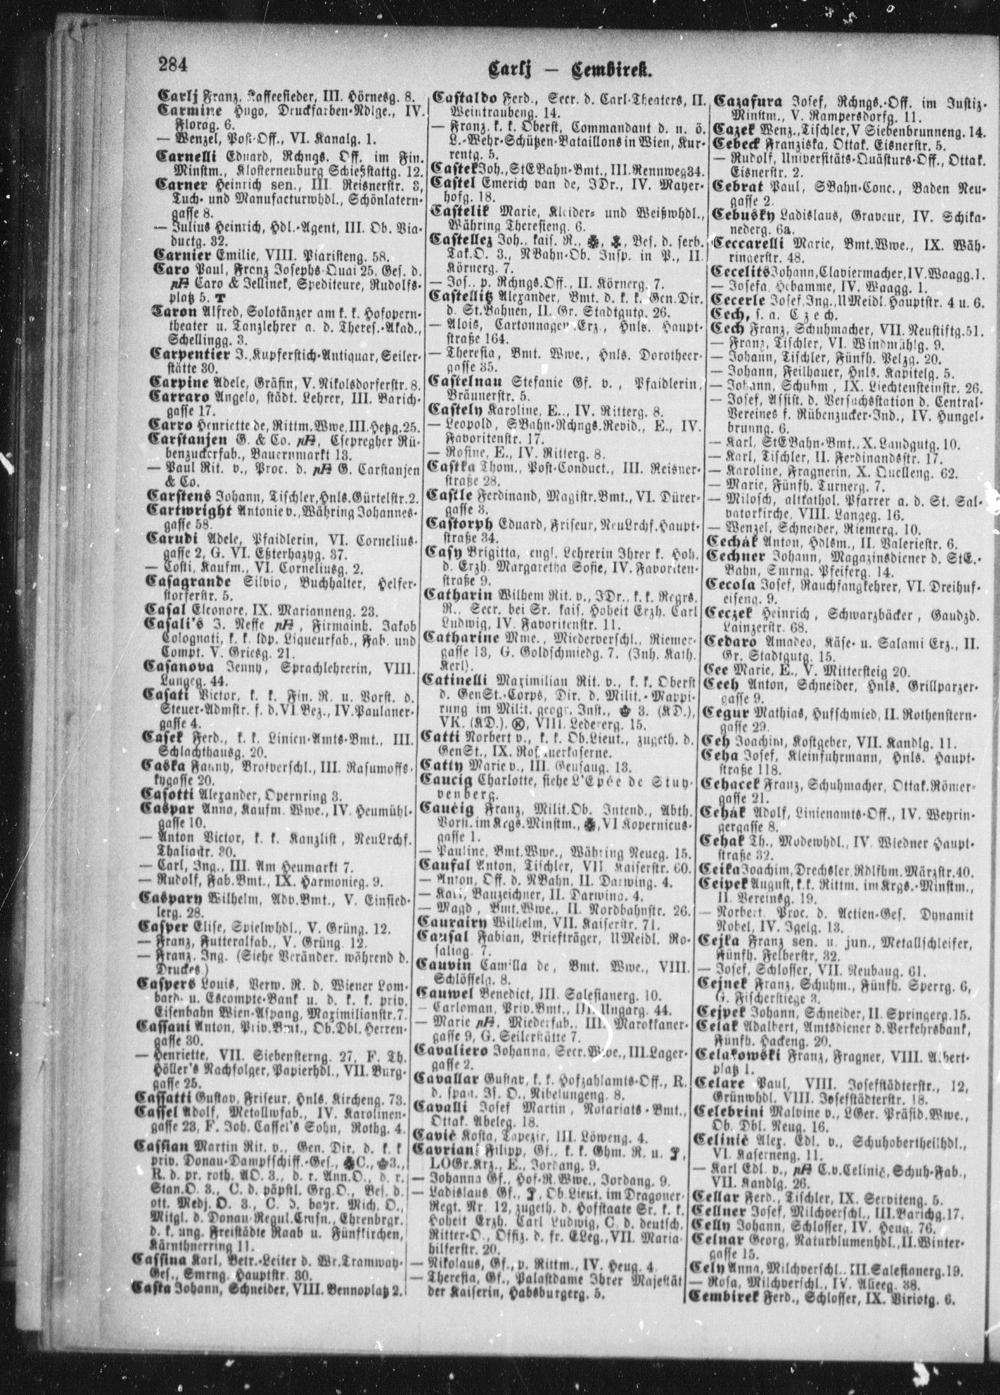 284
Carlj — Cembirek.
Carlj Franz, Kaffeesieder, III. Hörnesg. 8.
Carmine Hugo, Druckfarben-Ndlge., IV.
Florag. 6.
— Wenzel, Post-Off., VI. Kanalg. 1.
Carnelli Eduard, Rchngs. Off. im Fin.
Minstm., Klosterneuburg Schießstattg. 12.
Carner Heinrich sen., III. Reisnerstr. 3,
Tuch- und Manufacturwhdl., Schönlatern-
gasse 8.
— Julius Heinrich, Hdl.-Agent, III. Ob. Via-
ductg. 32.
Carnier Emilie, VIII. Piaristeng. 58.
Caro Paul, Franz Josephs-Quai 25, Ges. d.
Caro & Jellinek, Spediteure, Rudolfs-
platz 5. T
Caron Alfred, Solotänzer am k. k. Hofopern-
theater u. Tanzlehrer a. d. Theres.-Akad.,
Schellingg. 3.
Carpentier J., Kupferstich-Antiquar, Seiler-
stätte 30.
Carpine Adele, Gräfin, V. Nikolsdorferstr. 8.
Carraro Angelo, städt. Lehrer, III. Barich-
gasse 17.
Carro Henriette de, Rittm. Wwe, III. Hetzg. 25.
Carstanjen G. & Co. ppA, Csepregher Rü-
benzuckerfab., Bauernmarkt 13.
— Paul Rit. v., Proc. d. ppA G. Carstanjen
& Co.
Carstens Johann, Tischler, Hnls. Gürtelstr. 2.
Cartwright Antonie v., Währing Johannes-
gasse 58.
Carudi Adele, Pfaidlerin, VI. Cornelius-
gasse 2, G. VI. Esterhazyg. 37.
— Costi, Kaufm., VI. Corneliusg. 2.
Casagrande Silvio, Buchhalter, Helfer-
storferstr. 5.
Casal Eleonore, IX. Marianneng. 23.
Casali's J. Neffe ppA, Firmainh. Jakob
Colognati, k. k. ldp. Liqueurfab., Fab. und
Compt. V. Griesg. 21.
Casanova Jenny, Sprachlehrerin, VIII.
Langeg. 44.
Casati Victor, k. k. Fin. R. u. Vorst. d.
Steuer-Admstr. f. d. VI Bez., IV. Paulaner-
gasse 4.
Casek Ferd., k. k. Linien-Amts-Bmt., III.
Schlachthausg. 20.
Caska Fanny, Brotverschl., III. Rasumoffs-
kygasse 20.
Casotti Alexander, Opernring 3.
Caspar Anna, Kaufm. Wwe., IV. Heumühl-
gasse 10.
— Anton Victor, k. k. Kanzlist, NeuLrchf.
Thaliastr. 30.
— Carl, Ing., III. Am Heumarkt 7.
— Rudolf, Fab. Bmt., IX. Harmonieg. 9.
Caspary Wilhelm, Adv. Bmt., V. Einsied-
lerg. 28.
Casper Elise, Spielwhdl., V. Grüng. 12.
— Franz, Futteralfab., V. Grüng. 12.
— Franz, Ing. (Siehe Veränder. während d.
Druckes.)
Caspers Louis, Verw. R. d. Wiener Lom-
bard- u. Escompte-Bank u. d. k. k. priv.
Eisenbahn Wien-Aspang, Maximilianstr. 7.
Cassani Anton, Priv. Bmt., Ob. Dbl. Herren-
gasse 30.
— Henriette, VII. Siebensterng. 27, F. Th.
Höller's Nachfolger, Papierhdl., VII. Burg-
gasse 25.
Cassatti Gustav, Friseur, Hnls. Kircheng. 73.
Cassel Adolf, Metallwfab., IV. Karolinen-
gasse 23, F. Joh. Cassel's Sohn, Rothg. 4.
Cassian Martin Rit. v., Gen. Dir. d. k. k
priv. Donau-Dampfschiff.-Ges., C., 3.,
R. d. pr. roth. AO. 3., d. r. Ann.O., d. r.
Stan.O. 3., C. d. päpstl. Grg.O., Bes. d.
ott. Medj. O. 3., C. d. bayr. Mich. O.,
Mitgl. d. Donau-Regul. Cmsn., Ehrenbrgr.
d. k. ung. Freistädte Raab u. Fünfkirchen,
Kärnthnerring 11.
Cassina Karl, Betr.-Leiter d. Wr. Tramway-
Ges., Smrng. Hauptstr. 30.
Casta Johann, Schneider, VIII. Bennoplatz 2.
Castaldo Ferd., Secr. d. Carl-Theaters, II.
Weintraubeng. 14.
— Franz, k. k. Oberst, Commandant d. n. ö.
L.-Wehr-Schützen-Bataillons in Wien, Kur-
rentg. 5.
Castek Joh., StEBahn-Bmt., III. Rennweg 34.
Castel Emerich van de, JDr., IV. Mayer-
hofg. 18.
Castelik Marie, Kleider- und Weißwhdl.,
Währing Theresieng. 6.
Castellez Joh., kais. R., Bes. d. serb.
Tak.O. 3., NBahn-Ob. Insp. in P., II.
Körnerg. 7.
— Jos., p. Rchngs.Off., II. Körnerg. 7.
Castellitz Alexander, Bmt. d. k. k. Gen. Dir.
d. St.Bahnen, II. Gr. Stadtgutg. 26.
— Alois, Cartonnagen-Erz., Hnls. Haupt-
straße 164.
— Theresia, Bmt. Wwe., Hnls. Dorotheer-
gasse 35.
Castelnau Stefanie Gf. v., Pfaidlerin,
Bräunerstr. 5.
Castely Karoline, E., IV. Ritterg. 8.
— Leopold, SBahn-Rchngs. Revid., E., IV.
Favoritenstr. 17.
— Rosine, E., IV. Ritterg. 8.
Castka Thom., Post-Conduct., III. Reisner-
straße 28.
Castle Ferdinand, Magistr. Bmt., VI. Dürer-
gasse 3.
Castorph Eduard, Friseur, NeuLrchf. Haupt-
straße 34.
Casy Brigitta, engl. Lehrerin Ihrer k. Hoh.
d. Erzh. Margaretha Sofie, IV. Favoriten-
straße 9.
Catharin Wilhem Rit. v., JDr., k. k. Regrs.
R., Secr. bei Sr. kais. Hoheit Erzh. Carl
Ludwig, IV. Favoritenstr. 11.
Catharine Mme., Miederverschl., Riemer-
gasse 13, G. Goldschmiedg. 7. (Inh. Kath.
Kerl).
Catinelli Maximilian Rit. v., k. k. Oberst
d. GenSt.-Corps, Dir. d. Milit.-Mappi-
rung im Milit. geogr. Inst., 3. (KD.),
VK. (KD.), VIII. Ledererg. 15.
Catti Norbert v., k. k. Ob. Lieut., zugeth. d.
GenSt., IX. Rossauerkaserne.
Catty Marie v., III. Geusaug. 13.
Caucig Charlotte, siehe L'Epée de Stuy-
venberg.
Caučig Franz, Milit. Ob. Intend., Abth.
Vorst. im Krgs. Minstm., VI Kopernicus-
gasse 1.
— Pauline, Bmt. Wwe., Währing Neueg. 15.
Causal Anton, Tischler, VII Kaiserstr. 60.
— Anton, Off. d. NBahn, II. Darwing. 4.
— Karl, Bauzeichner, II. Darwing. 4.
— Magd., Bmt. Wwe., II. Nordbahnstr. 26.
Caurairy Wilhelm, VII. Kaiserstr. 71.
Causal Fabian, Briefträger, UMeidl. Ro-
saliag. 7.
Cauvin Camilla de, Bmt. Wwe., VIII.
Schlösselg. 8.
Cauwel Benedict, III. Salesianerg. 10.
— Carloman, Priv. Bmt., III. Ungarg. 44.
— Marie ppA, Miederfab., III. Marokkaner-
gasse 9, G. Seilerstätte 7.
Cavaliero Johanna, Secr. Wwe., III. Lager-
gasse 2.
Cavallar Gustav, k. k. Hofzahlamts-Off., R.
d. span. Is. O., Nibelungeng. 8.
Cavalli Josef Martin, Notariats-Bmt.,
Ottak. Abeleg. 18.
Cavič Kosta, Tapezir, III. Löweng. 4.
Cavriani Filipp, Gf., k. k. Ghm. R. u.
LOGr.Krz., E., Jordang. 9.
— Johanna Gf., Hof-R. Wwe., Jordang. 9.
— Ladislaus Gf., Ob. Lieut. im Dragoner-
Regt. Nr. 12, zugeth. d. Hofstaate Sr. k. k.
Hoheit Erzh. Carl Ludwig, C. d. deutsch.
Ritter-O., Offiz. d. fr. ELeg., VII. Maria-
hilferstr. 20.
— Nikolaus, Gf., p. Rittm., IV. Heug. 4.
— Theresia, Gf., Palastdame Ihrer Majestät
der Kaiserin, Habsburgerg. 5.
Cazafura Josef, Rchngs.-Off. im Justiz-
Minstm., V. Rampersdorfg. 11.
Cazek Wenz., Tischler, V Siebenbrunneng. 14.
Cebeck Franziska, Ottak. Eisnerstr. 5.
— Rudolf, Universitäts-Quästurs-Off., Ottak.
Eisnerstr. 2.
Cebrat Paul, SBahn-Conc., Baden Neu-
gasse 2.
Cebusky Ladislaus, Graveur, IV. Schika-
nederg. 6a.
Ceccarelli Marie, Bmt. Wwe., IX. Wäh-
ringerstr. 48.
Cecelits Johann, Claviermacher, IV. Waagg. 1.
— Josefa, Hebamme, IV. Waagg. 1.
Cecerle Josef, Ing., UMeidl. Hauptstr. 4 u. 6.
Cech, s. a. Czech.
Cech Franz, Schuhmacher, VII. Neustiftg. 51.
— Franz, Tischler, VI. Windmühlg. 9.
— Johann, Tischler, Fünfh. Pelzg. 20.
— Johann, Feilhauer, Hnls. Kapitelg. 5.
— Johann, Schuhm., IX. Liechtensteinstr. 26.
— Josef, Assist. d. Versuchsstation d. Central-
Vereines f. Rübenzucker-Ind., IV. Hungel-
brunng. 6.
— Karl, StEBahn-Bmt., X. Landgutg. 10.
— Karl, Tischler, II. Ferdinandsstr. 17.
— Karoline, Fragnerin, X. Quelleng. 62.
— Marie, Fünfh. Turnerg. 7.
— Milosch, altkathol. Pfarrer a. d. St. Sal-
vatorkirche, VIII. Langeg. 16.
— Wenzel, Schneider, Riemerg. 10.
Cechák Anton, Hdlsm., II. Valeriestr. 6.
Cechner Johann, Magazinsdiener d. StE.-
Bahn, Smrng. Pfeiferg. 14.
Cecola Josef, Rauchfangkehrer, VI. Dreihuf-
eiseng. 9.
Ceczek Heinrich, Schwarzbäcker, Gaudzd.
Lainzerstr. 68.
Cedaro Amadeo, Käse- u. Salami Erz., II.
Gr. Stadtgutg. 15.
Cee Marie, E., V. Mittersteig 20.
Ceeh Anton, Schneider, Hnls. Grillparzer-
gasse 9.
Cegur Mathias, Hufschmied, II. Rothenstern-
gasse 29.
Ceh Joachim, Kostgeber, VII. Kandlg. 11.
Ceha Josef, Kleinfuhrmann, Hnls. Haupt-
straße 118.
Cehacek Franz, Schuhmacher, Ottak. Römer-
gasse 21.
Cehák Adolf, Linienamts-Off., IV. Weyrin-
gergasse 8.
Cehak Th., Modewhdl., IV. Wiedner Haupt-
straße 32.
Ceika Joachim, Drechsler, Rdlfhm. Märzstr. 40.
Ceipek August, k. k. Rittm. im Krgs.-Minstm.,
II. Vereinsg. 19.
— Norbert, Proc. d. Actien-Ges. Dynamit
Nobel, IV. Igelg. 13.
Cejka Franz sen. u. jun., Metallschleifer,
Fünfh. Felberstr. 32.
— Josef, Schlosser, VII. Neubaug. 61.
Cejnek Franz, Schuhm., Fünfh. Sperrg. 6,
G. Fischerstiege 3.
Cejpek Johann, Schneider, II. Springerg. 15.
Celak Adalbert, Amtsdiener d. Verkehrsbank,
Fünfh. Hackeng. 20.
Celakowski Franz, Fragner, VIII. Albert-
platz 1.
Celare Paul, VIII. Josefstädterstr., 12,
Grünwhdl. VIII. Josefstädterstr. 18.
Celebrini Malvine v., LGer. Präsid. Wwe.,
Ob. Dbl. Neug. 16.
Celinič Alex. Edl. v., Schuhobertheilhdl.,
VI. Kaserneng. 11.
— Karl Edl. v., ppA C. v. Celinič, Schuh-Fab.,
VII. Kandlg. 26.
Cellar Ferd., Tischler, IX. Serviteng. 5.
Cellner Josef, Milchverschl., III. Barichg. 17.
Celly Johann, Schlosser, IV. Heug. 76.
Celnar Georg, Naturblumenhdl., II. Winter-
gasse 15.
Cely Anna, Milchverschl., III. Salesianerg. 19.
— Rosa, Milchverschl., IV. Alleeg. 38.
Cembirek Ferd., Schlosser, IX. Viriotg. 6.